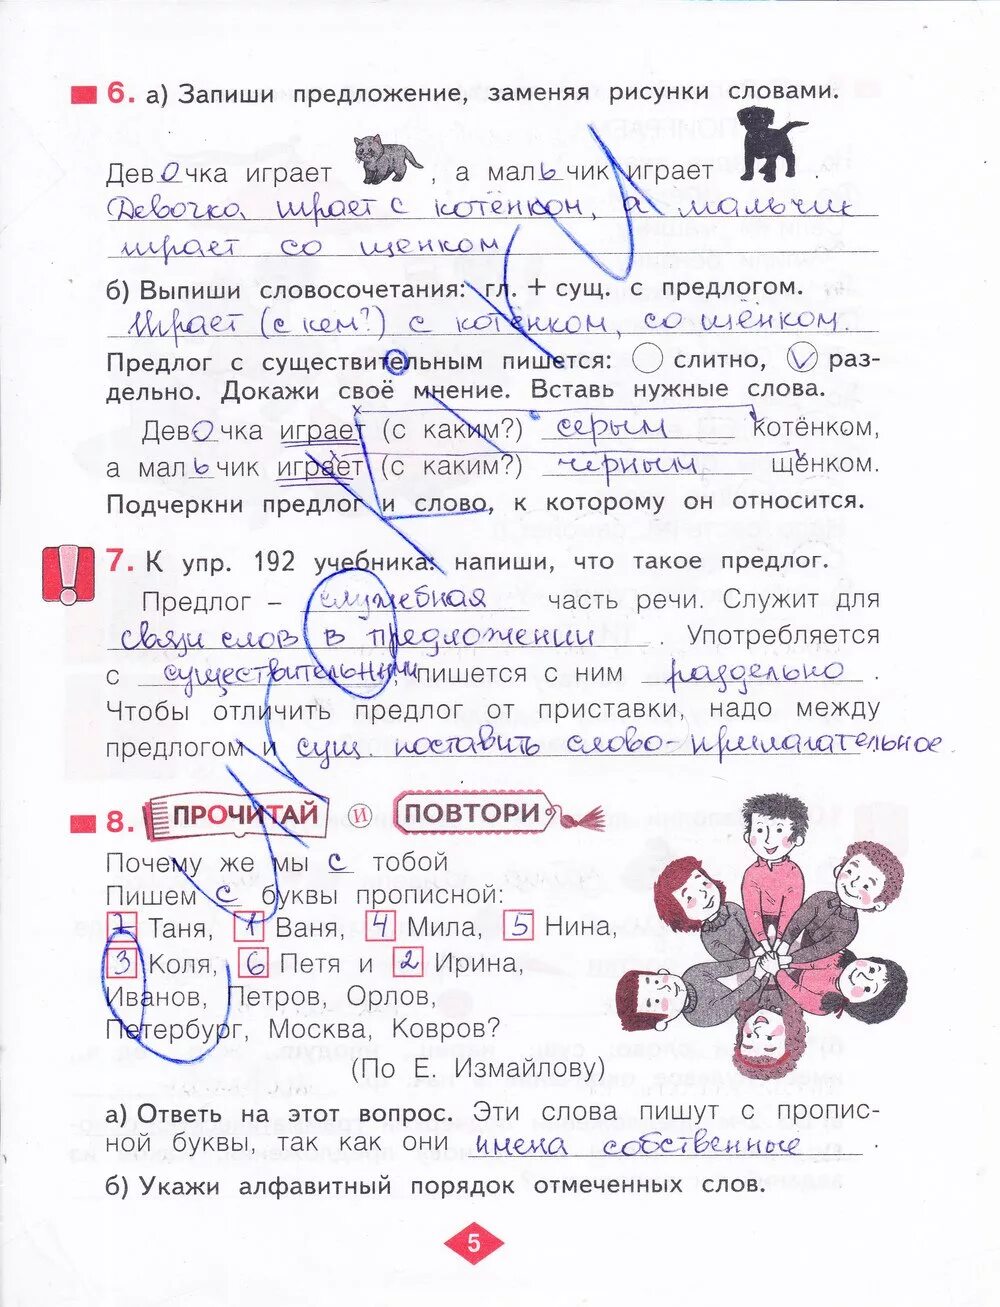 6. а) Запиши предложение, заменяя рисунки словами.
Девочка играет , а мальчик играет .
Девочка играет с котёнком, а мальчик
играет со щенком
б) Выпиши словосочетания: гл. + сущ. с предлогом.
Играет (с кем?) с котёнком, со щёнком.
Предлог с существительным пишется: слитно, V раз-
дельно. Докажи своё мнение. Вставь нужные слова.
Девочка играет (с каким?) серым котёнком,
а мальчик играет (с каким?) черным щенком.
Подчеркни предлог и слово, к которому он относится.
7. К упр. 192 учебника: напиши, что такое предлог.
Предлог – служебная часть речи. Служит для
связи слов в предложении . Употребляется
с существительными, пишется с ним раздельно .
Чтобы отличить предлог от приставки, надо между
предлогом и сущ. поставить слово-прилагательное.
8. ПРОЧИТАЙ И ПОВТОРИ
Почему же мы с тобой
Пишем с буквы прописной:
7 Таня, 1 Ваня, 4 Мила, 5 Нина,
3 Коля, 6 Петя и 2 Ирина,
Иванов, Петров, Орлов,
Петербург, Москва, Ковров?
(По Е. Измайлову)
а) Ответь на этот вопрос. Эти слова пишут с пропис-
ной буквы, так как они имена собственные .
б) Укажи алфавитный порядок отмеченных слов.
5